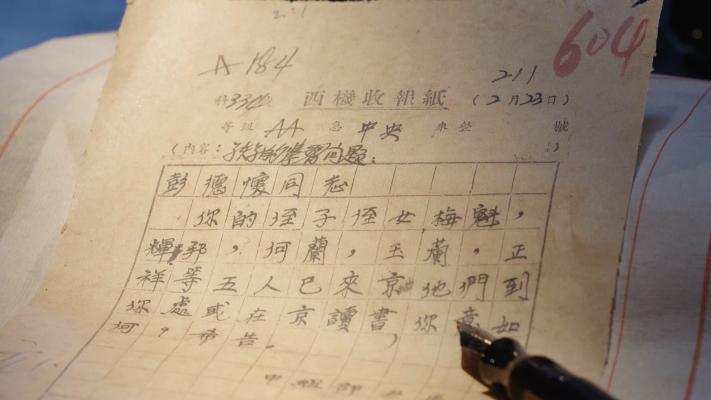 604
A 184
211
西機收報紙 (2月23日)
等級 AA 急 中央 號
(內容：孩子的學習問題。)
彭德懷同志
你的侄子侄女梅魁，
輝邦，何蘭，玉蘭，正
祥等五人已來京他們到
你處或在京讀書，你意如
何，希告。
中組部